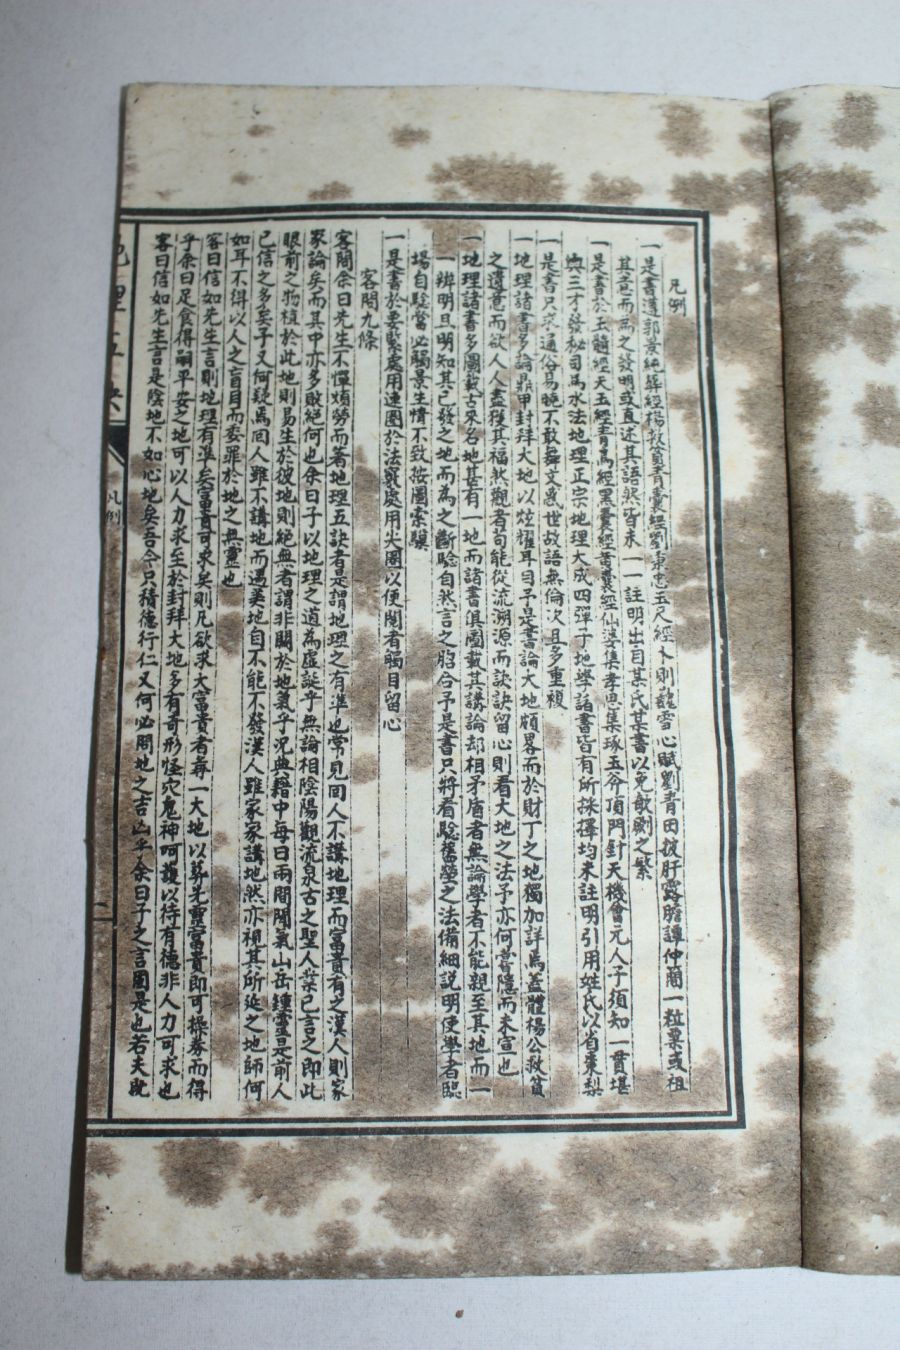 凡例
一是書遵郭景純葬經楊救貧青囊經劉秉忠玉尺經卜則巍雪心賦劉青田披肝露膽譚仲簡一粒粟或祖
其意而為之發明或直述其語然皆未一一註明出自某氏某書以免飣餖之繁
一是書於玉髓經天玉經青烏經黑囊經黃囊經仙婆集孝思集琢玉斧頂門針天機會元人子須知一貫堪
輿三才發秘司馬水法地理正宗地理大成四彈子地學諸書皆有所採擇均未註明引用姓氏以省棗梨
一是書只求通俗易曉不敢舞文惑世故語無倫次且多重複
一地理諸書多論鼎甲封拜大地以炫耀耳目予是書論大地頗畧而於財丁之地獨加詳焉蓋體楊公救貧
之遺意而欲人人盡獲其福然觀者苟能從流溯源而訣訣留心則看大地之法予亦何嘗隱而未宣也
一地理諸書多圖載古來名地甚有一地而諸書俱圖載其講論却相矛盾者無論學者不能親至其地而一
一辨明且明知其已發之地而為之斷驗自然言之脗合予是書只將看驗舊塋之法備細説明使學者臨
場自驗當必觸景生情不致按圖索驥
一是書於要緊處用連圈於法竅處用尖圈以便閱者矚目留心
客問九條
客問余曰先生不憚煩勞而著地理五訣者是謂地理之有準也常見回人不講地理而富貴有之漢人則家
家論矣而其中亦多敗絕何也余曰子以地理之道為虛誕乎無論相陰陽觀流泉古之聖人業已言之即此
眼前之物植於此地則易生於彼地則絕無者謂非關於地氣乎況典籍中每曰兩間閒氣山岳鍾靈是前人
已信之多矣子又何疑焉回人雖不講地而遇美地自不能不發漢人雖家家講地然亦視其所延之地師何
如耳不得以人之盲目而委罪於地之無靈也
客曰信如先生言則地理有準矣富貴可求矣則凡欲求大富貴者尋一大地以葬先靈富貴即可操券而得
乎余曰足食得嗣平安之地可以人力求至於封拜大地多有奇形怪穴鬼神呵護以待有德非人力可求也
客曰信如先生言是陰地不如心地矣吾今只積德行仁又何必問地之吉凶乎余曰子之言固是也若夫脫
地理五訣
凡例
二